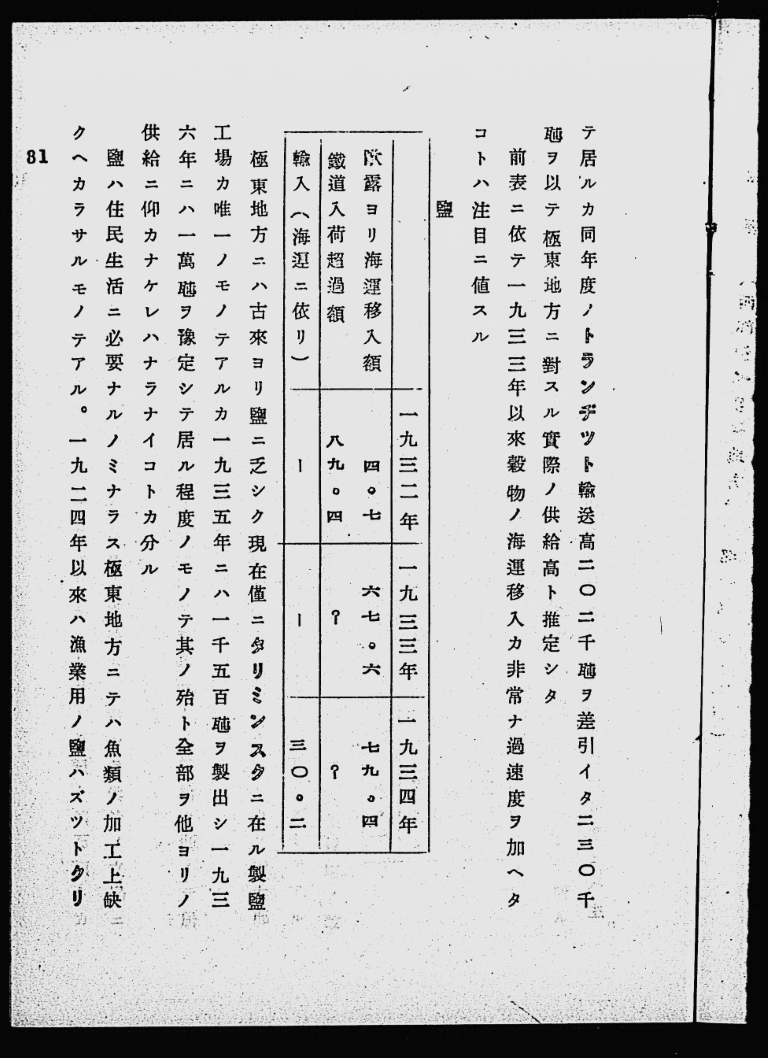 テ居ルカ同年度ノトランヂツト輸送高二〇二千瓲ヲ差引イタ二三〇千
瓲ヲ以テ極東地方ニ對スル實際ノ供給高ト推定シタ
前表ニ依テ一九三三年以來穀物ノ海運移入カ非常ナ過速度ヲ加ヘタ
コトハ注目ニ値スル
鹽
一九三二年 一九三三年 一九三四年
歐露ヨリ海運移入額 四。七 六七。六 七九。四
鐵道入荷超過額 八九。四 ? ?
輸入(海運ニ依リ) ー ー 三〇。二
極東地方ニハ古來ヨリ鹽ニ乏シク現在僅ニタリミンスクニ在ル製鹽
工場カ唯一ノモノテアルカ一九三五年ニハ一千五百瓲ヲ製出シ一九三
六年ニハ一萬瓲ヲ豫定シテ居ル程度ノモノテ其ノ殆ト全部ヲ他ヨリノ
供給ニ仰カナケレハナラナイコトカ分ル
鹽ハ住民生活ニ必要ナルノミナラス極東地方ニテハ魚類ノ加工上缺
クヘカラサルモノテアル。一九二四年以來ハ漁業用ノ鹽ハズツトクリ
81